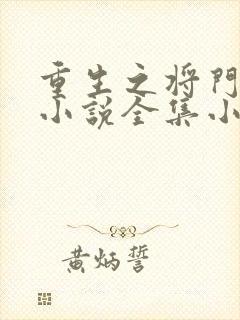 重生之将門
小説全集小
黄炳誓